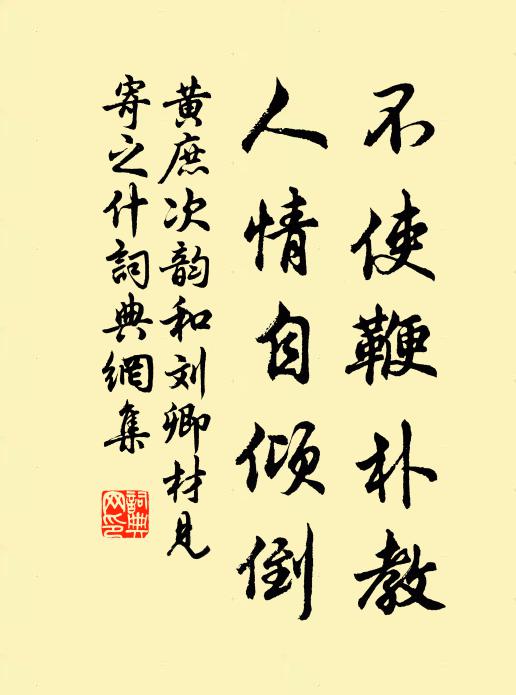 不使鞭朴教
人情自倾倒
黄庶次韵和刘卿材见
寄之什詞典網集
詞典
网印